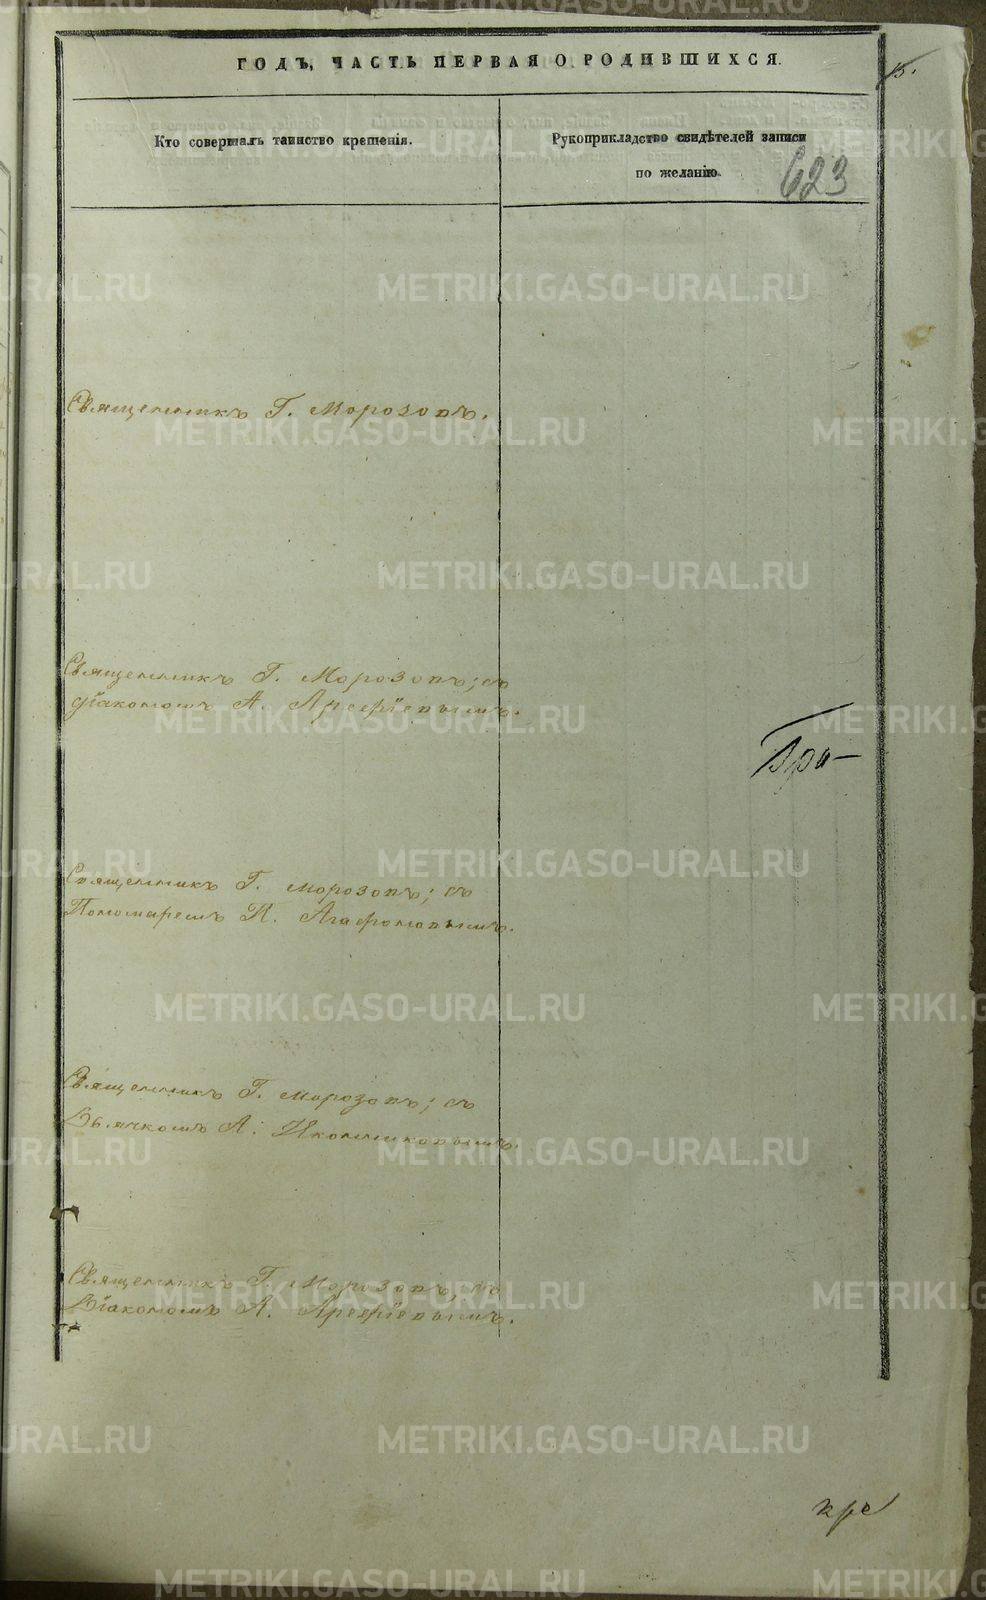 ГОДЪ, ЧАСТЬ ПЕРВАЯ О РОДИВШИХСЯ.
15.
Кто совершалъ таинство крещенія.
Рукоприкладство свидѣтелей записи
по желанію.
623
Священникъ Г. Морозовъ.
Священникъ Г. Морозовъ; съ
діакономъ А. Арефіевымъ.
Гри-
Священникъ Г. Морозовъ; съ
Пономаремъ П. Агафоновымъ.
Священникъ Г. Морозовъ; съ
Дьячкомъ А. Иконниковымъ.
Священникъ Г. Морозовъ, съ
Діакономъ А. Арефіевымъ.
METRIKI.GASO-URAL.RU